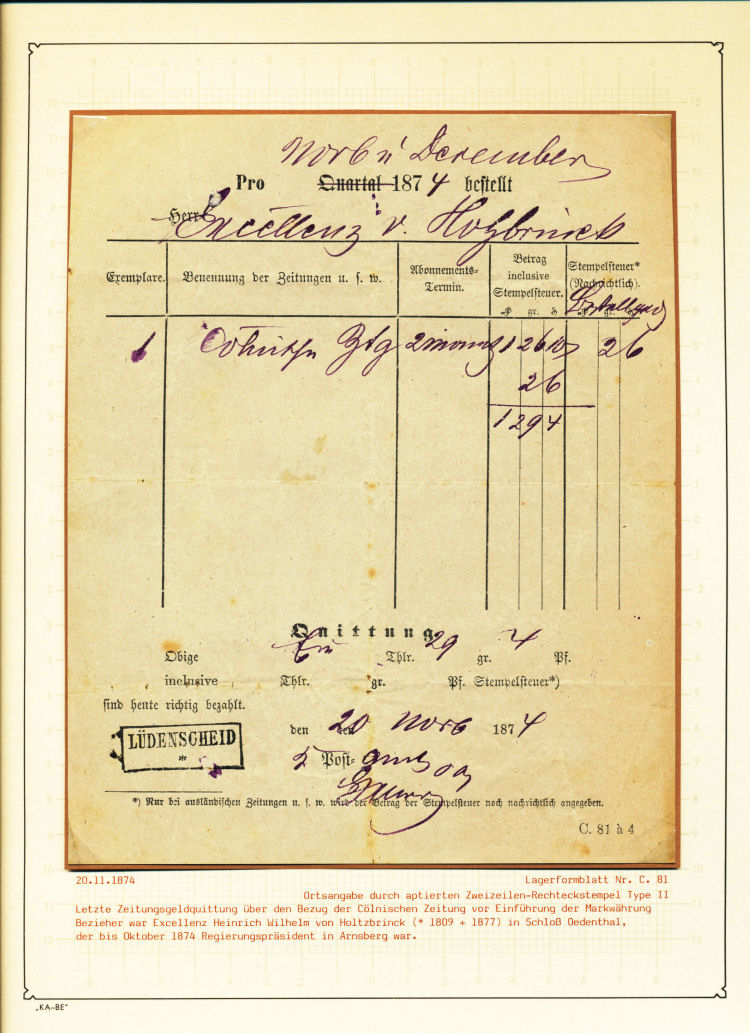 Novb u December
Pro Quartal 1874 bestellt
Herr Excellenz v. Holzbrinck
Exemplare. Benennung der Zeitungen u. s. w. Abonnements-Termin. Betrag inclusive Stempelsteuer. Stempelsteuer* (Nachrichtlich).
gr. gr.
1 Cölnische Ztg 2 monat 1 26 10 26
26
1 29 4
Quittung
Obige Ein Thlr. 29 gr. 4 Pf.
inclusive Thlr. gr. Pf. Stempelsteuer*)
sind heute richtig bezahlt.
den 20 ten Novb 1874
LÜDENSCHEID
*
Post- amt
*) Nur bei ausländischen Zeitungen u. s. w. wird der Betrag der Stempelsteuer noch nachrichtlich angegeben.
C. 81 à 4
20.11.1874 Lagerformblatt Nr. C. 81
Ortsangabe durch aptierten Zweizeilen-Rechteckstempel Type II
Letzte Zeitungsgeldquittung über den Bezug der Cölnischen Zeitung vor Einführung der Markwährung
Bezieher war Excellenz Heinrich Wilhelm von Holtzbrinck (* 1809 + 1877) in Schloß Oedenthal,
der bis Oktober 1874 Regierungspräsident in Arnsberg war.
„KA-BE"